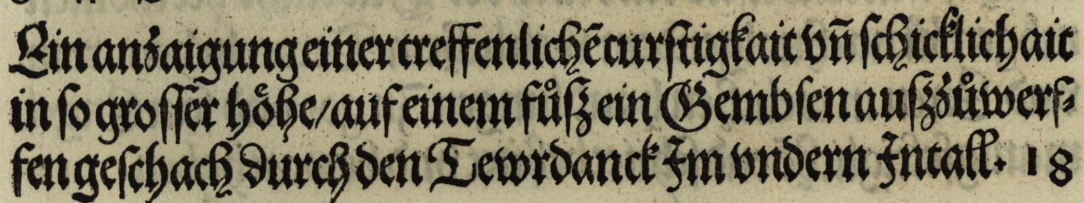 Ein anzaigung einer treffenlichē turstigkait vn̄ schicklichait
in so grosser hoͤhe/auf einem fuͦsz ein Gembsen ausz zuͦwerf⸗
fen geschach durch den Tewrdanck Jm vndern Jntall. 18